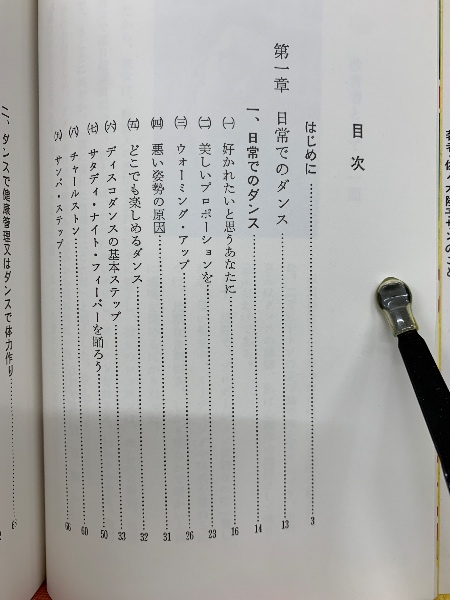 目次
はじめに……3
第一章 日常でのダンス……13
一、日常でのダンス……14
㈠ 好かれたいと思うあなたに……16
㈡ 美しいプロポーションを……23
㈢ ウォーミング・アップ……26
㈣ 悪い姿勢の原因……31
㈤ どこでも楽しめるダンス……32
㈥ ディスコダンスの基本ステップ……33
㈦ サタディ・ナイト・フィーバーを踊ろう……50
㈧ チャールストン……60
㈨ サンバ・ステップ……66
二、ダンスで健康管理又はダンスで体力作り